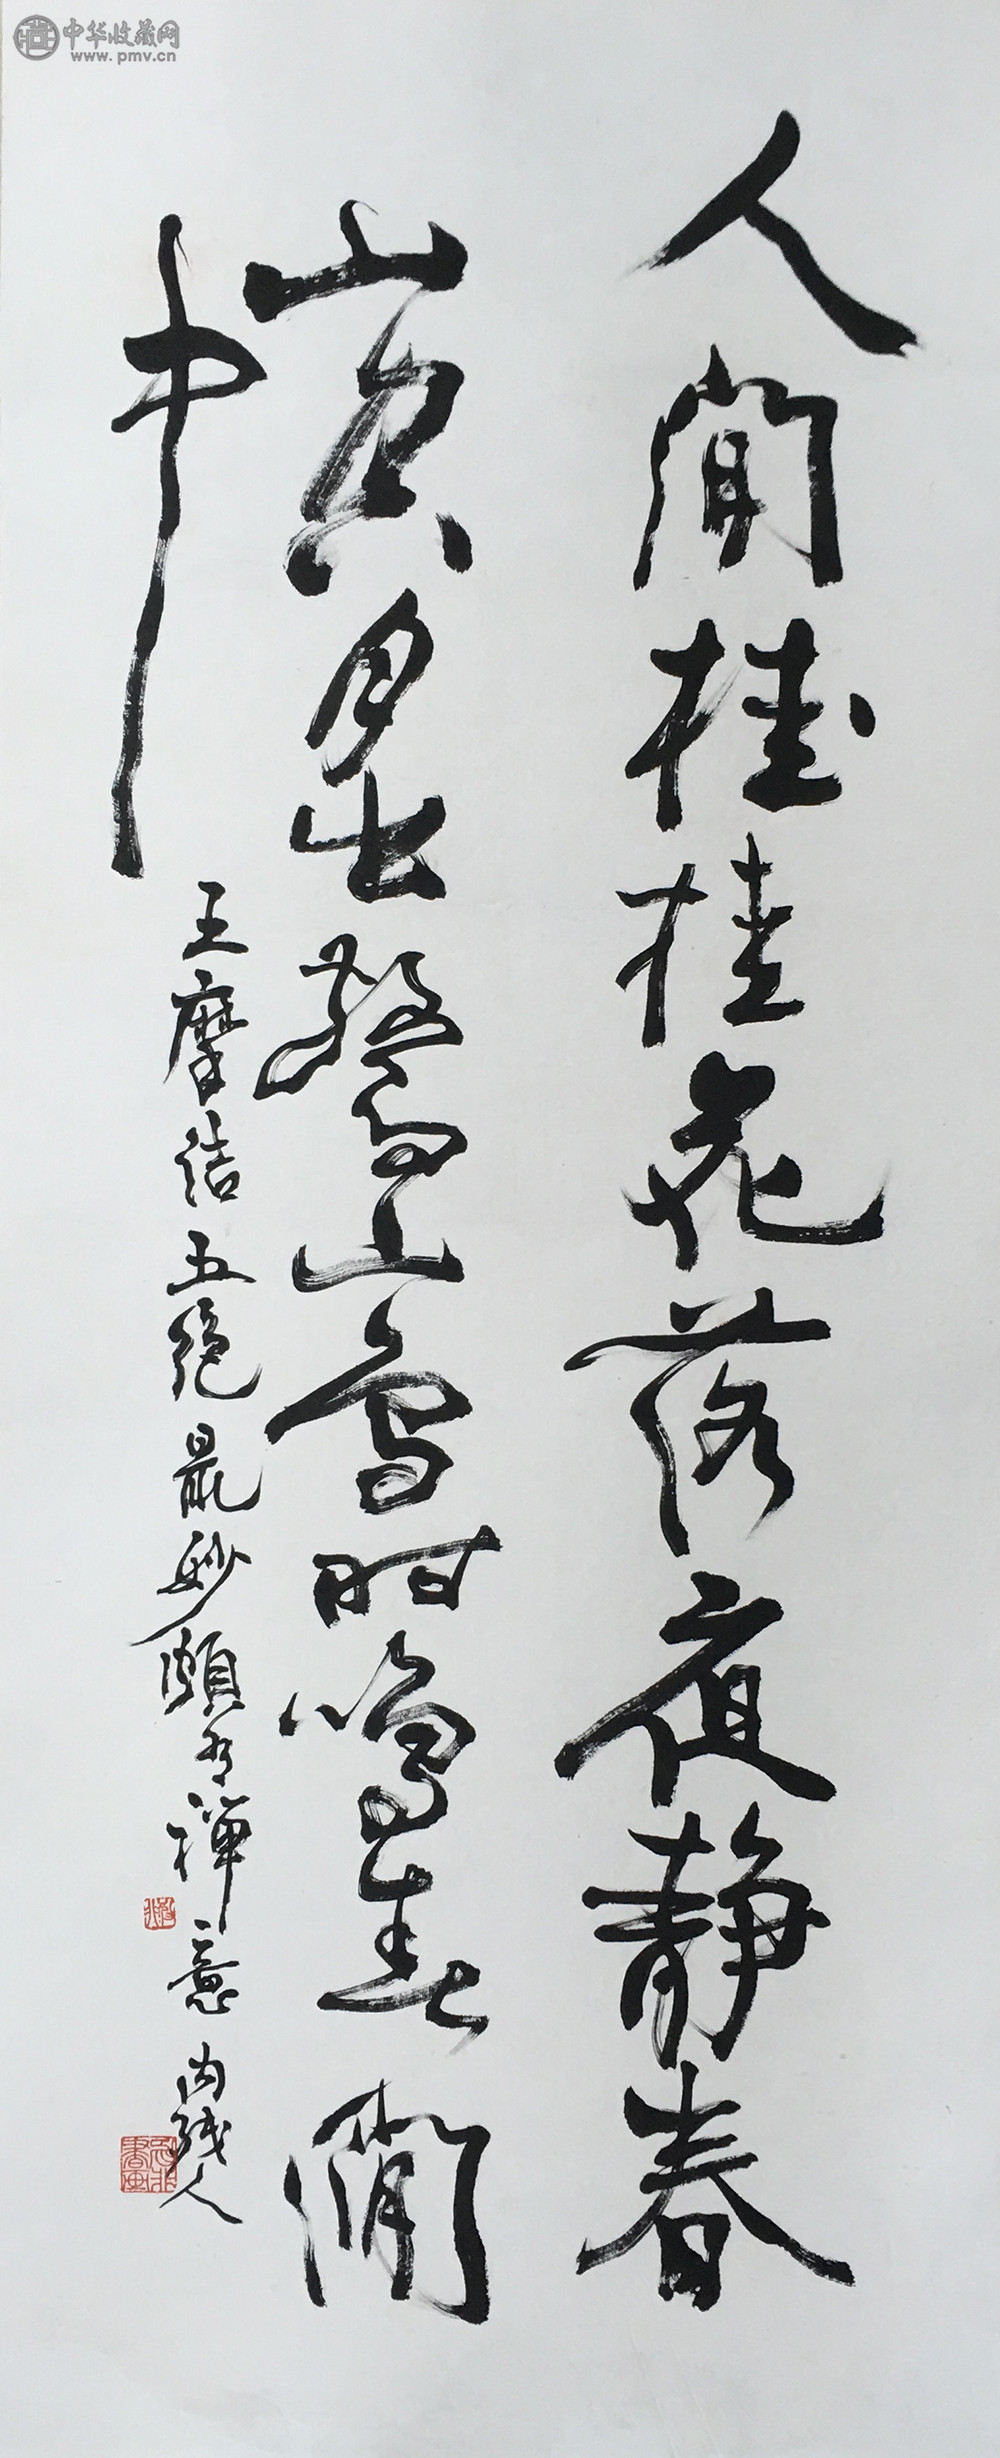 中华收藏网
www.pmv.cn
人閒桂桂花落夜静春
山空月出驚山鳥时鳴春澗
中
王摩诘五絶最妙頗有禅意